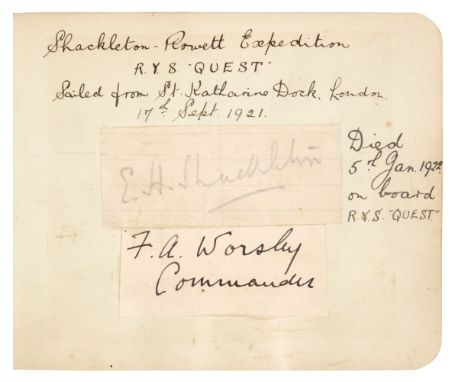 Shackleton-Rowett Expedition
R.Y.S "QUEST"
Sailed from St. Katharine Dock, London.
17th Sept. 1921.
E. H. Shackleton
Died
5th Jan. 1922
on board
R.Y.S. "QUEST"
F. A. Worsley
Commander